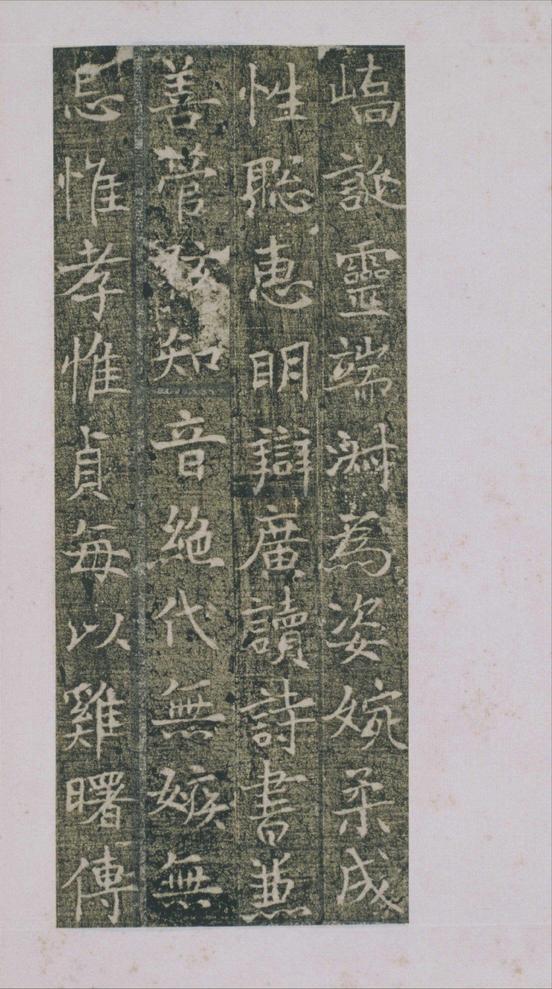 嶠誕靈端淑為姿婉柔成
性聡惠明辯廣讀詩書兼
善管弦知音絕代無嫉無
忌惟孝惟貞每以雞曙傳